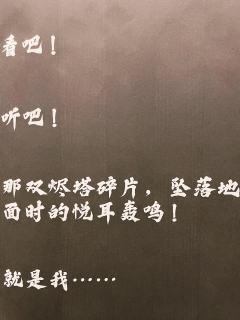 看吧！
听吧！
那双烬塔碎片，坠落地
面时的悦耳轰鸣！
就是我……